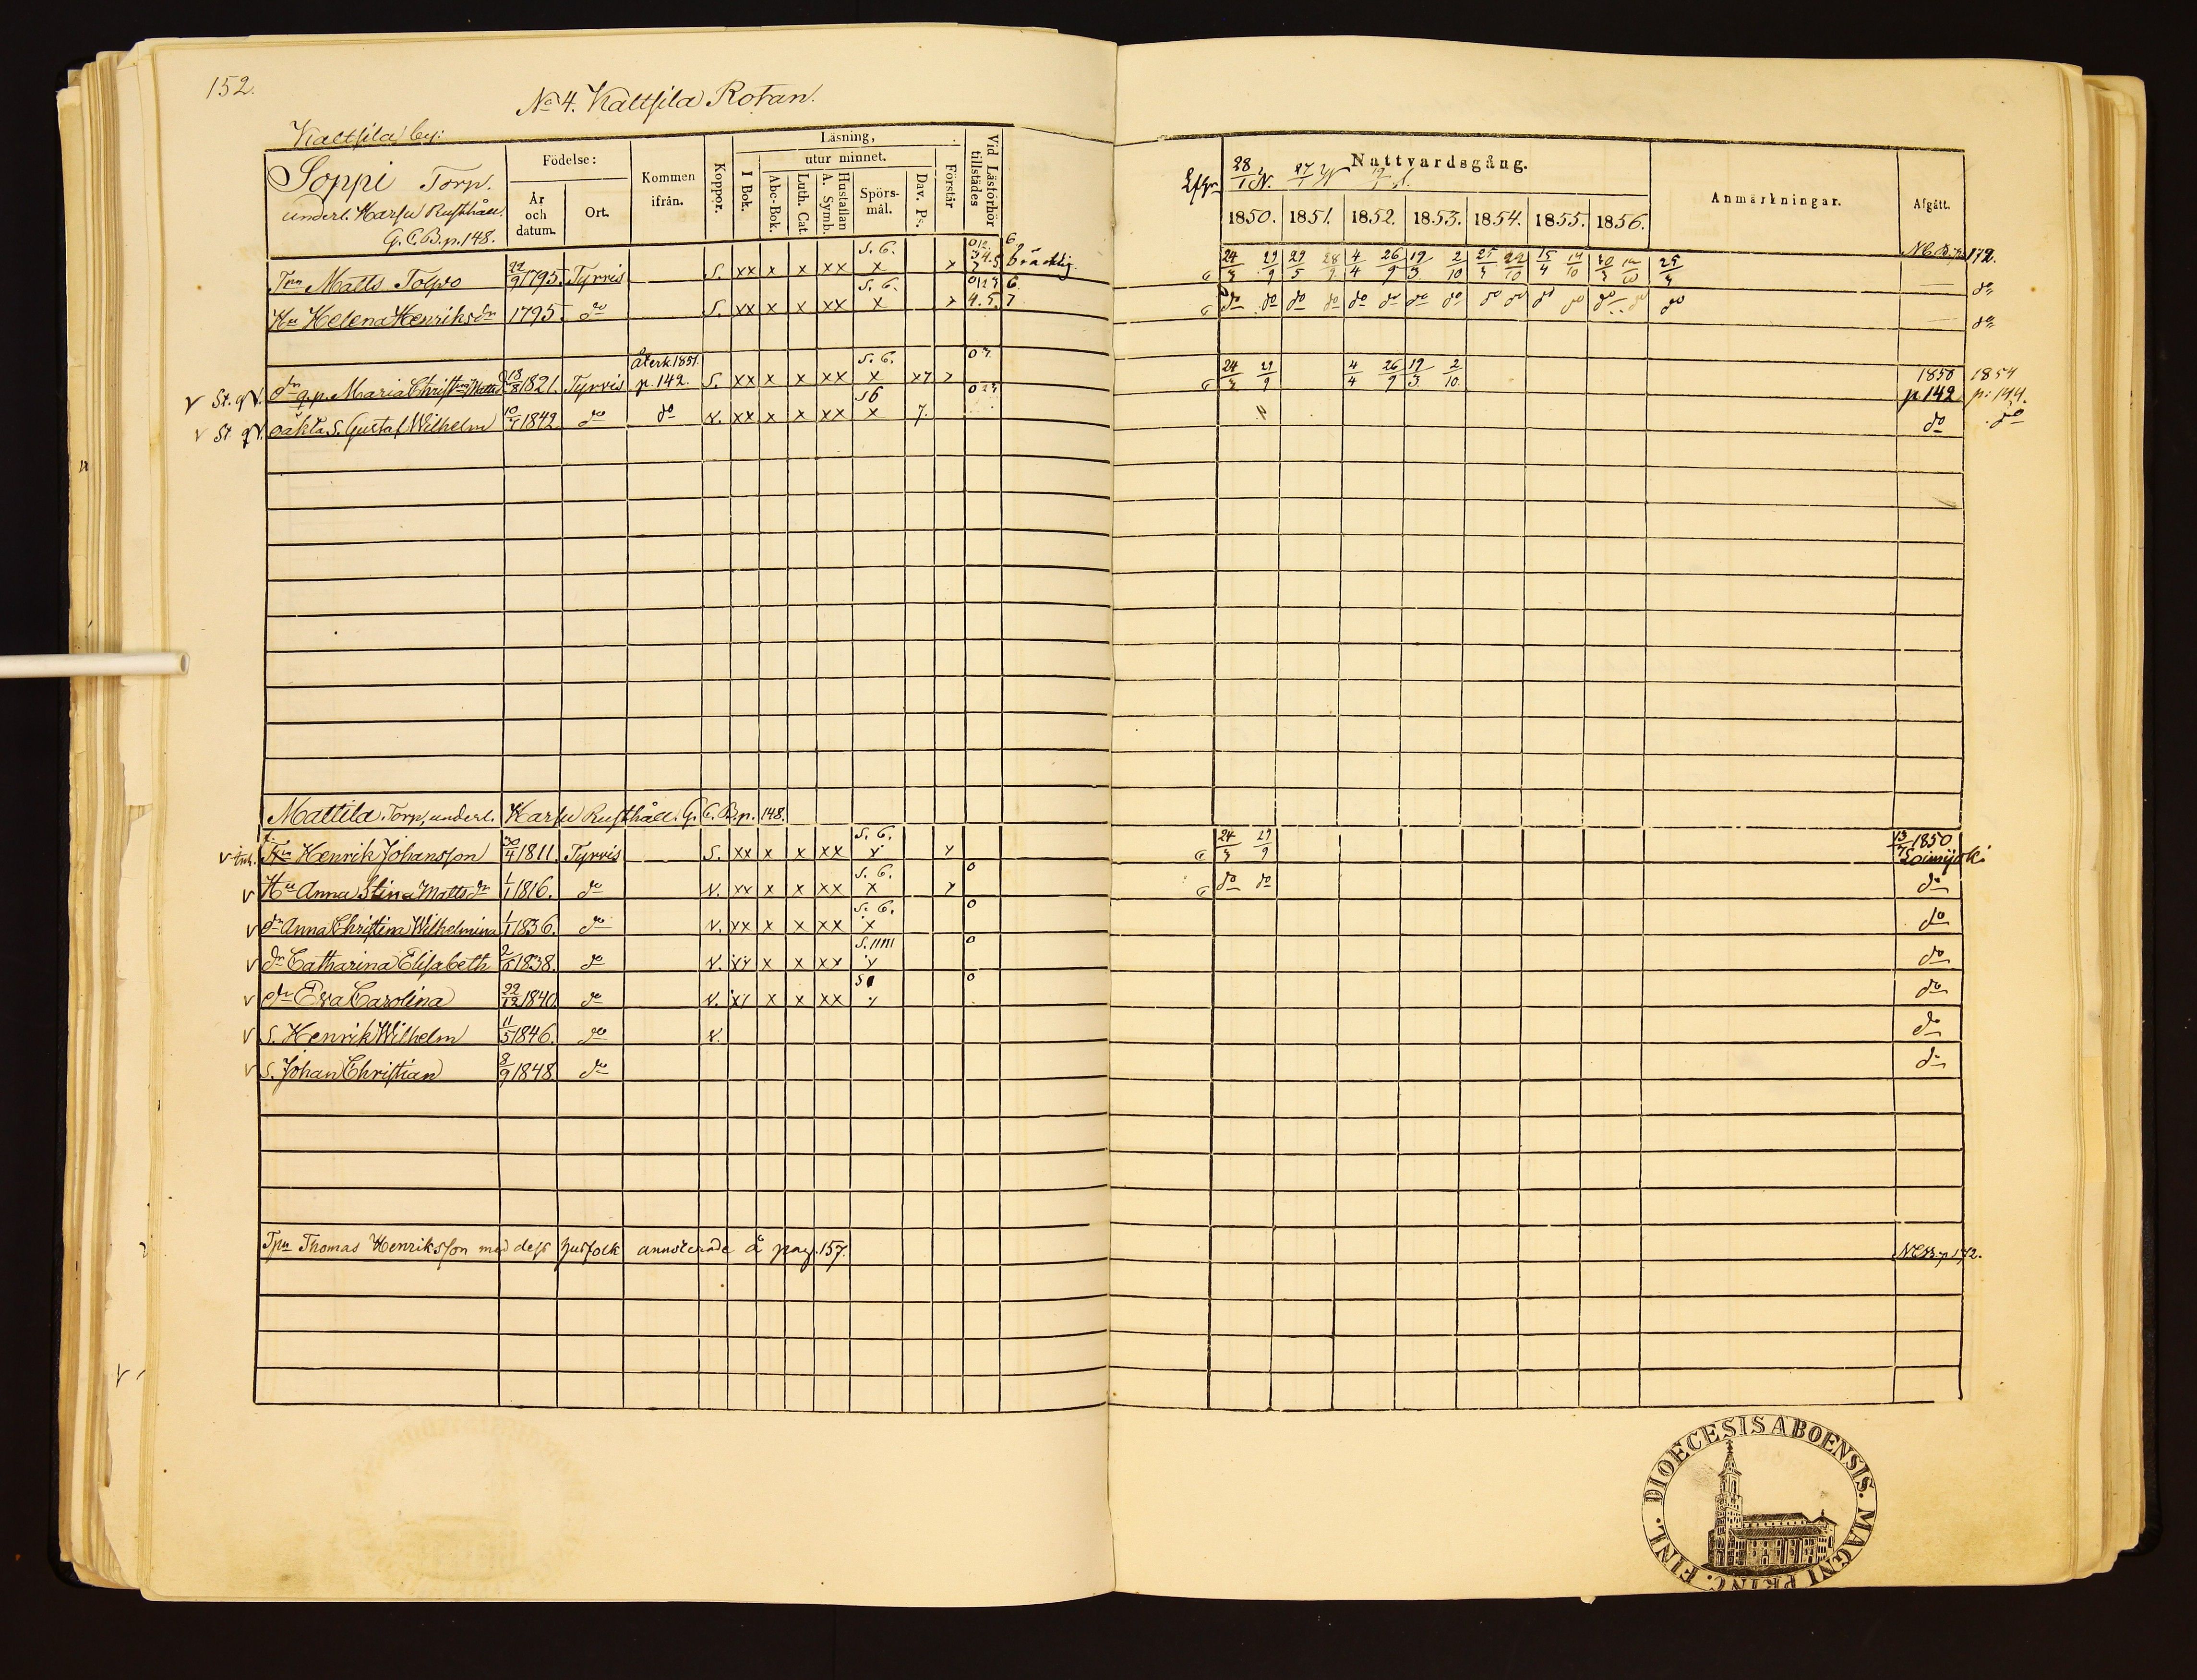 152.
No 4. Kaltsila Rotan.
Kaltsila by:
Soppi Torp.
underl. Karsu Rusthåll.
G.C.B.p.148.
Födelse:
År och datum.
Ort.
Kommen ifrån.
Koppor.
Läsning,
I Bok.
utur minnet.
Abc-Bok.
Luth. Cat.
Hustaflan A. Symb.
Spörs-mål.
Dav. Ps.
Förstår
Vid Läsförhör tillstädes
Nattvardsgång.
28/1 27/1
1850. 1851. 1852. 1853. 1854. 1855. 1856.
Anmärkningar.
Afgått.
Matts Tolpo 22/9 1795. Tyrvis S. xx x x xx S. 6. x x 012 34.5 6 bräcklig. 24/3 29/9 29/5 28/9 4/4 26/9 19/3 2/10 15/4 14/10 N.C.B.p. 172.
Hu Helena Henriksdr 1795. do S. xx x x xx S. 6. x x 4.5. 6 7 do do do do do do do do do do do do do do do
dr q.p. Maria Christina Mattsd 18/8 1821. Tyrvis återk. 1851. p. 142. S. xx x x xx S. 6. x x7 x 24/3 29/9 4/4 26/9 19/3 2/10 1850 p. 142 1854 p. 144.
oäkta S. Gustaf Wilhelm 10/7 1842 do do v. xx x x xx S 6 x 7. do do
Mattila Torp, underl. Karsu Rusthåll. G.C.B.p. 148.
v Henrik Johansson 30/4 1811. Tyrvis S. xx x x xx S. 6. x x 24/3 29/9 1850 Loimijoki
v Hu Anna Stina Mattsdr 1/1 1816. do v. xx x x xx S. 6. x x 0 do do do
v dr Anna Christina Wilhelmina 1/1 1836. do v. xx x x xx S. 6. x 0 do
v dr Catharina Elisabeth 1838. do v. xx x x xx x 0 do
v dr Eva Carolina 22/12 1840. do v. xx x x xx x 0 do
v S. Henrik Wilhelm 11/5 1846. do v. do
v S. Johan Christian 8/9 1848. do do
Tpn Thomas Henriksson med dess husfolk annoterade å pag. 157. NCB.p 172.
DIOECESIS ABOENSIS. MAGNI PRINC. FINL.